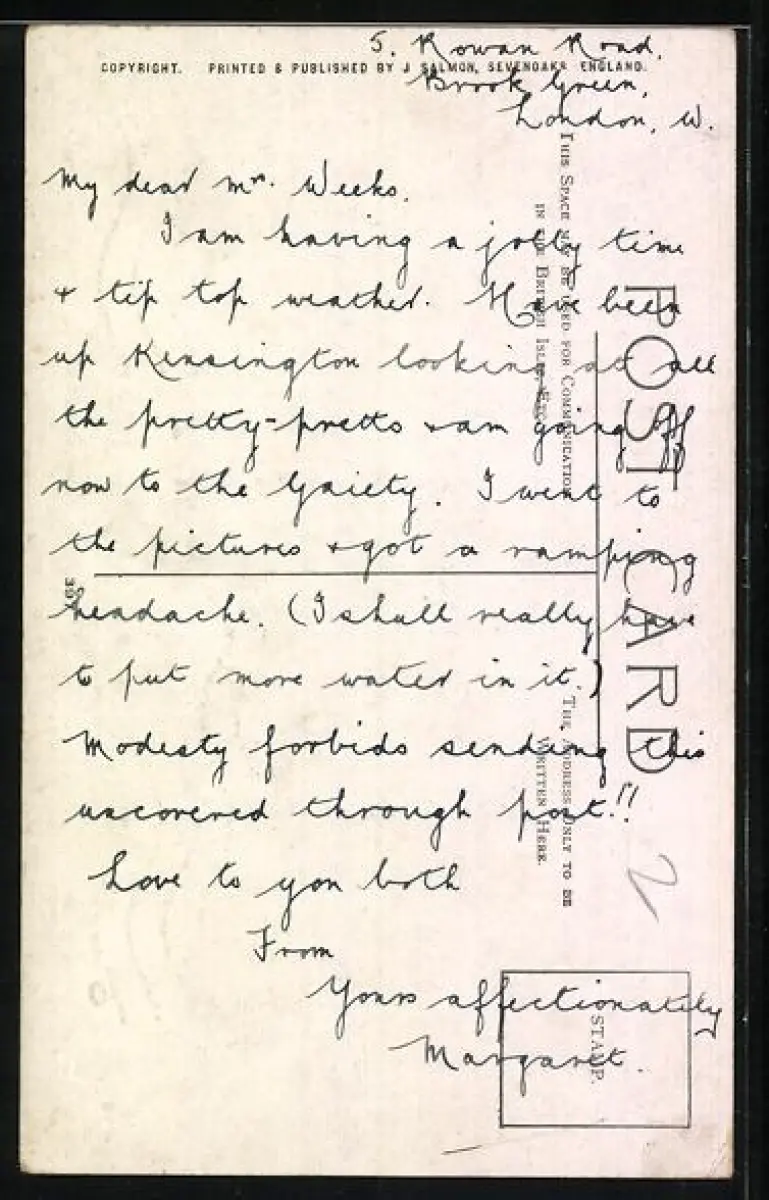 5. Rowan Road,
COPYRIGHT. PRINTED & PUBLISHED BY J SALMON, SEVENOAKS ENGLAND.
Brook Green,
London, W.
My dear Mrs. Weeks,
I am having a jolly time
& tip top weather. Have been
up Kensington looking at all
the pretty-pretts & am going off
now to the Gaiety. I went to
the pictures & got a ramping
headache. (I shall really have
to put more water in it.)
Modesty forbids sending this
uncovered through post!!
Love to you both
From
Yours affectionately
Margaret.
POST CARD
THIS SPACE MAY BE USED FOR COMMUNICATION
IN THE BRITISH ISLES,
THE ADDRESS ONLY TO BE
WRITTEN HERE.
STAMP.
2